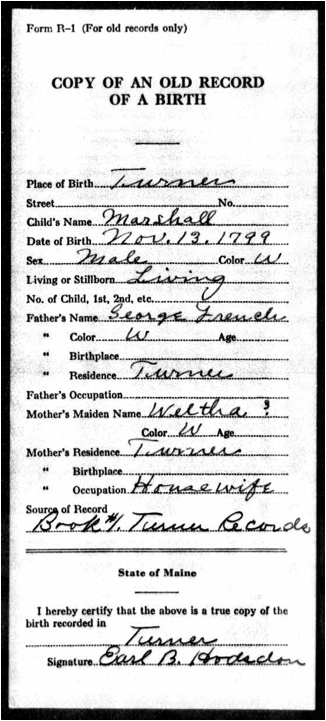 Form R-1 (For old records only)
COPY OF AN OLD RECORD
OF A BIRTH
Place of Birth Turner
Street No.
Child's Name Marshall
Date of Birth Nov. 13. 1799
Sex Male Color W
Living or Stillborn Living
No. of Child, 1st, 2nd, etc.
Father's Name George French
" Color W Age
" Birthplace
" Residence Turner
Father's Occupation
Mother's Maiden Name Weltha ?
Color W Age
Mother's Residence Turner
" Birthplace
" Occupation Housewife
Source of Record
Book #1. Turner Records
State of Maine
I hereby certify that the above is a true copy of the
birth recorded in
Turner
Signature Earl B. Hodsdon